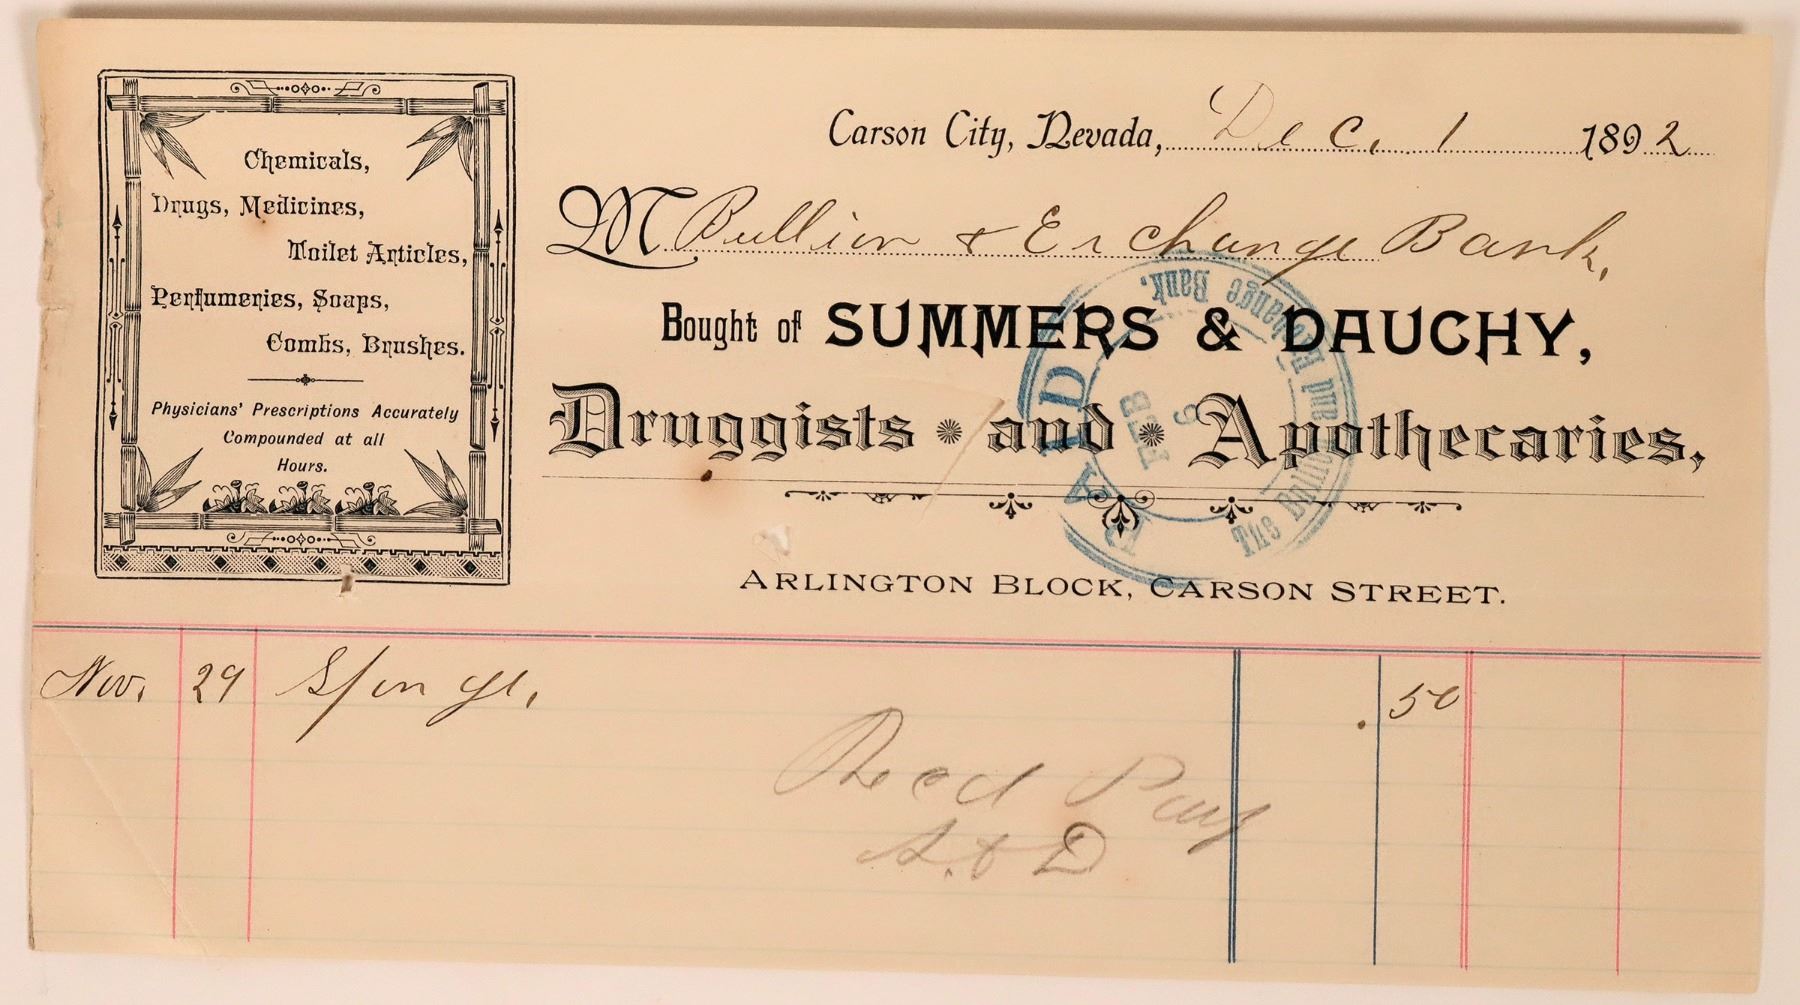 Chemicals,
Drugs, Medicines,
Toilet Articles,
Perfumeries, Soaps,
Combs, Brushes.
Physicians' Prescriptions Accurately
Compounded at all
Hours.
Carson City, Nevada, Dec. 1 1892
M Bullion & Exchange Bank,
Bought of SUMMERS & DAUCHY,
Druggists and Apothecaries,
ARLINGTON BLOCK, CARSON STREET.
The Bullion and Exchange Bank.
FEB
PAID
Nov. 29 Sponge. .50
Recd Pay
S. & D